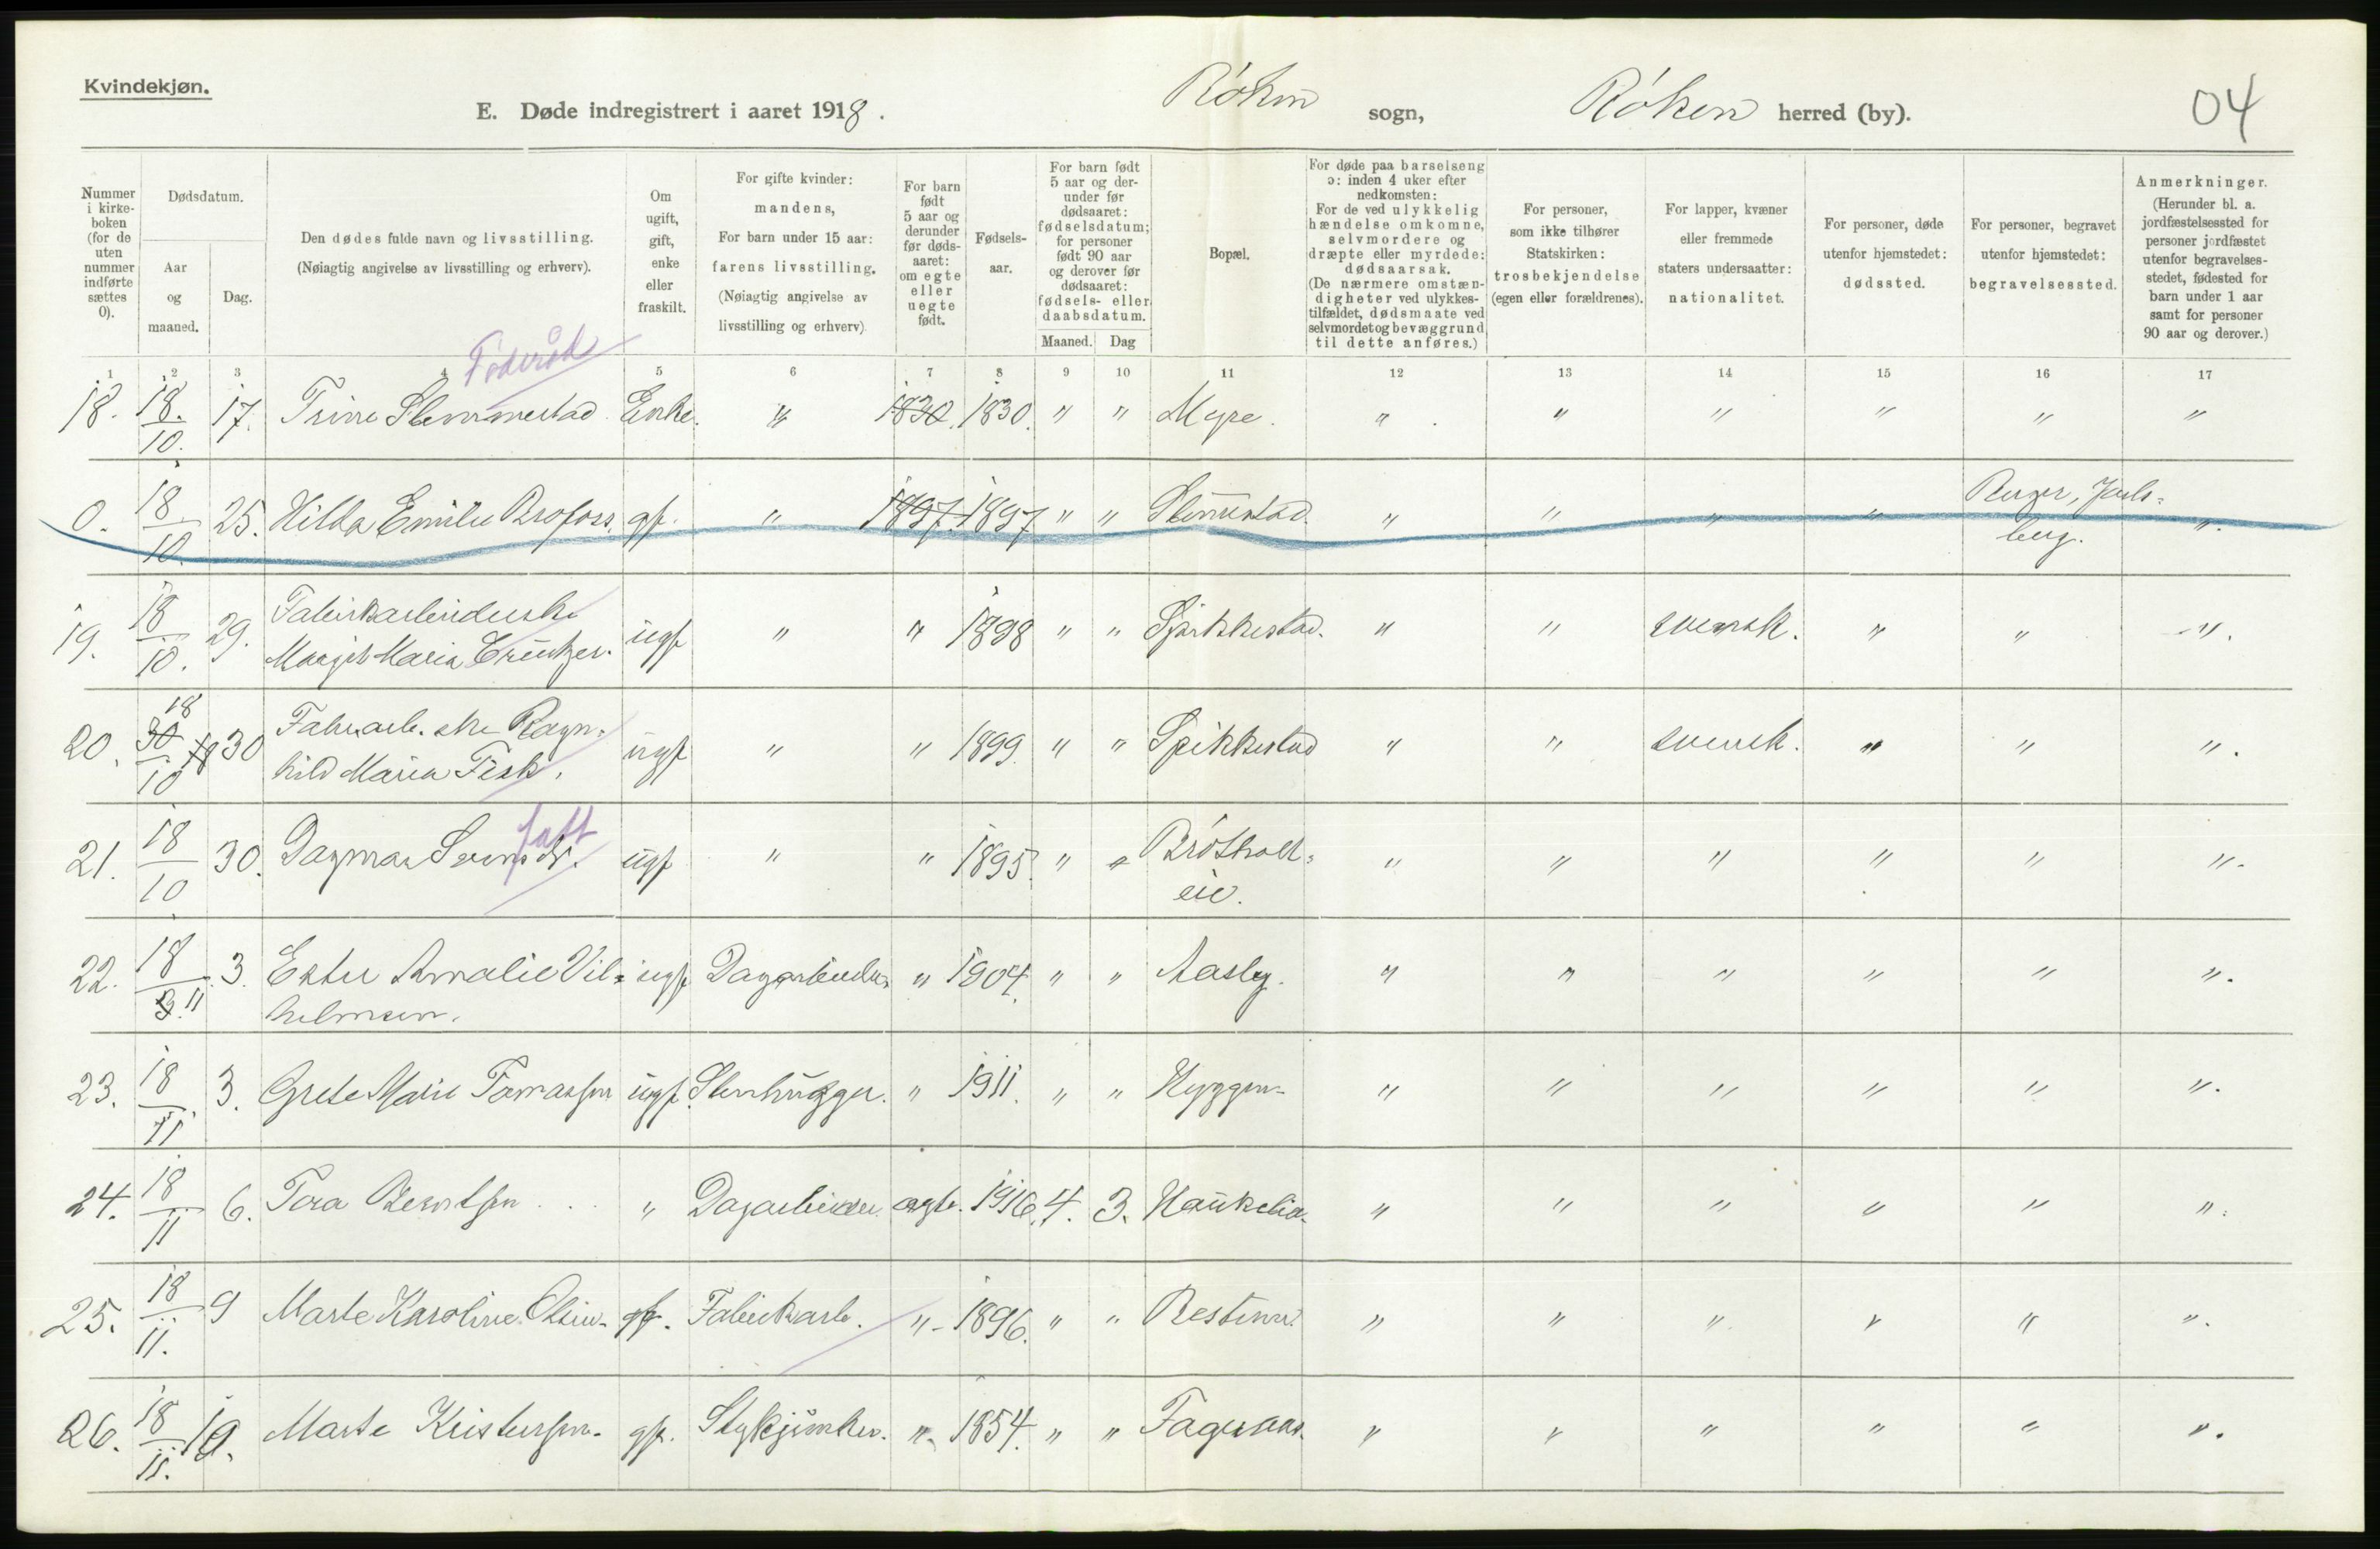 Kvindekjøn.
E. Døde indregistrert i aaret 1918.
Røken sogn, Røken herred (by).
04
Nummer i kirkeboken (for de uten nummer indførte sættes 0).
Dødsdatum.
Aar og maaned.
Dag.
Den dødes fulde navn og livsstilling.
(Nøiagtig angivelse av livsstilling og erhverv).
Om ugift, gift, enke eller fraskilt.
For gifte kvinder: mandens,
For barn under 15 aar: farens livsstilling.
(Nøiagtig angivelse av livsstilling og erhverv)
For barn født 5 aar og derunder før dødsaaret: om egte eller uegte født.
Fødselsaar.
For barn født 5 aar og derunder før dødsaaret: fødselsdatum; for personer født 90 aar og derover før dødsaaret: fødsels- eller daabsdatum.
Maaned. Dag
Bopæl.
For døde paa barselseng ɔ: inden 4 uker efter nedkomsten:
For de ved ulykkelig hændelse omkomne, selvmordere og dræpte eller myrdede: dødsaarsak.
(De nærmere omstændigheter ved ulykkestilfældet, dødsmaate ved selvmordet og bevæggrund til dette anføres.)
For personer, som ikke tilhører Statskirken: trosbekjendelse (egen eller forældrenes).
For lapper, kvæner eller fremmede staters undersaatter: nationalitet.
For personer, døde utenfor hjemstedet: dødssted.
For personer, begravet utenfor hjemstedet: begravelsessted.
Anmerkninger.
(Herunder bl. a. jordfæstelsessted for personer jordfæstet utenfor begravelsesstedet, fødested for barn under 1 aar samt for personer 90 aar og derover.)
1 2 3 4 5 6 7 8 9 10 11 12 13 14 15 16 17
Føderåd
18. 18/10. 17. Trine Slemmestad Enke. " 1830. 1830. " " Myre. " " " " " "
0. 18/10. 25. Hilda Emilie Brofoss. gf. " 1897. 1897 " " Slemmestad. " " " " Berger, Jarls=berg. ".
19. 18/10. 29. Fabrikarbeiderske
Margit Maria Creutzer. ugf " " 1898 " " Spikkestad. " " svensk. " " ".
20. 18 30/10 18 30 Fabrarb.ske Ragn=
hild Maria Fisk. ugf " " 1899. " " Spikkestad " " svensk. " " ".
fatt
21. 18/10 30. Dagmar ugf " " 1895. " " " " " " " ".
22. 18/3. 11 3. Ester Amalie Vil=
helmsen. ugf Dagarbeider " 1904. " " Aasby. " " " " " ".
23. 18/11. 3. Grete Marie Tomassen ugf. Stenhugger. " 1911. " " Hyggen " " " " " ".
24. 18/11 6. Tora Berntsen " Dagarbeider. egte. 1916. 4. 3. Haukelia. " " " " " ".
25. 18/11. 9 Marte Karoline Olsen. gf. Fabrikarb. " 1896. " " " " " " " ".
26. 18/11. 10. Marte Kristensen. gf. Stykjunker. " 1854. " " Fageraas. " " " " " ".